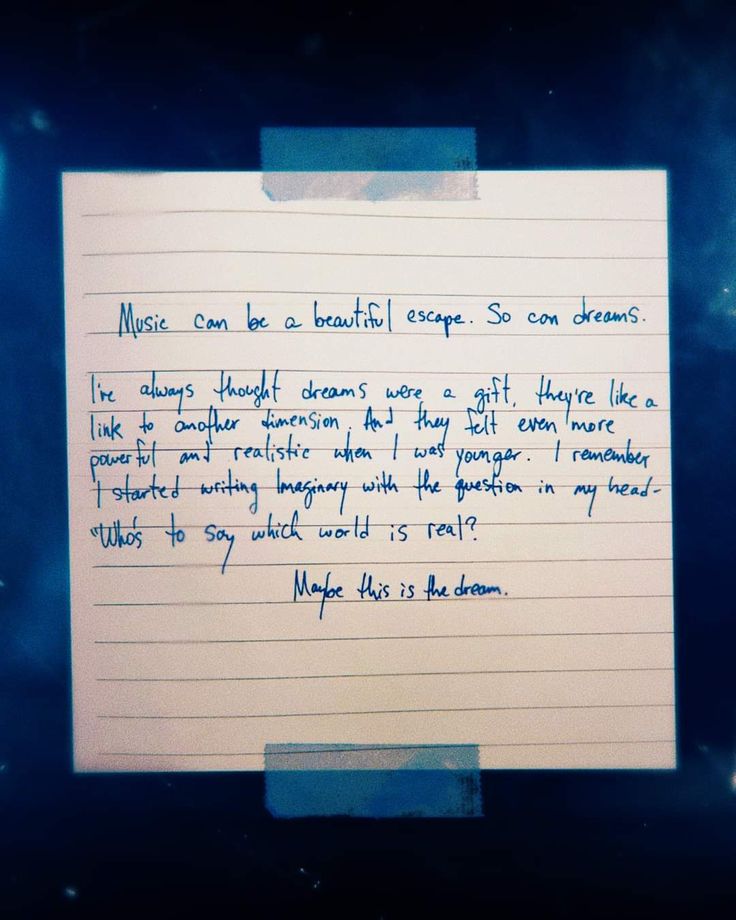 Music can be a beautiful escape. So can dreams.
I've always thought dreams were a gift, they're like a
link to another dimension. And they felt even more
powerful and realistic when I was younger. I remember
I started writing Imaginary with the question in my head-
"Who's to say which world is real?
Maybe this is the dream.